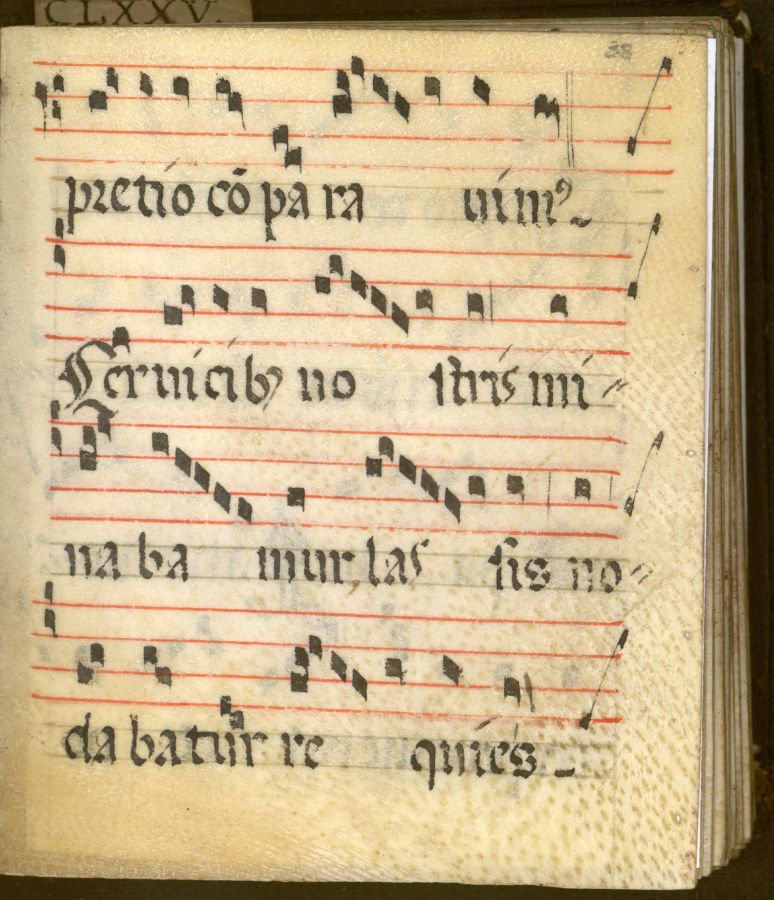 CLXXV.
38
pretio cō pa ra uimꝰ
Ceruicibꝫ no stris mi
na ba mur, las sis no
da batur re quies